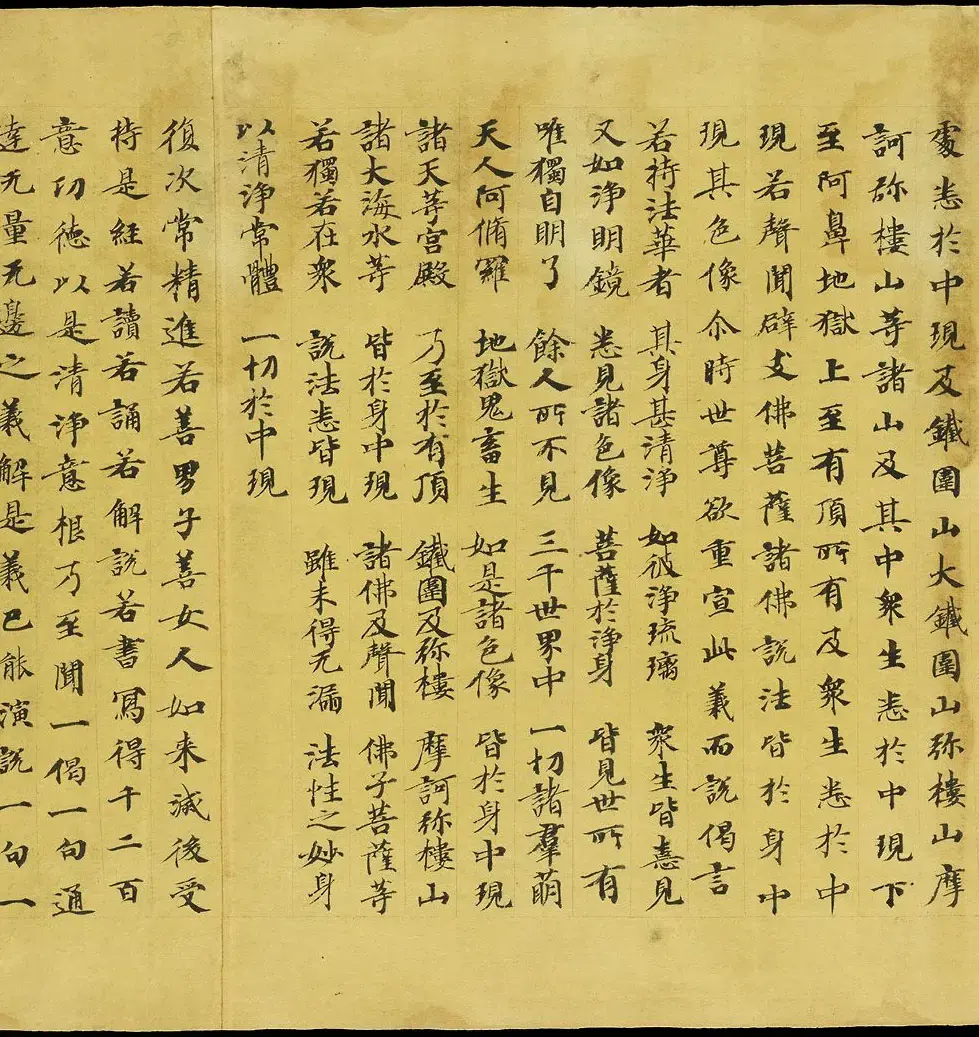 處悉於中現及鐵圍山大鐵圍山弥樓山摩
訶弥樓山等諸山及其中衆生悉於中現下
至阿鼻地獄上至有頂所有及衆生悉於中
現若聲聞辟支佛菩薩諸佛說法皆於身中
現其色像尒時世尊欲重宣此義而說偈言
若持法華者 其身甚清淨 如彼淨琉璃 衆生皆憙見
又如淨明鏡 悉見諸色像 菩薩於淨身 皆見世所有
唯獨自明了 餘人所不見 三千世界中 一切諸羣萌
天人阿脩羅 地獄鬼畜生 如是諸色像 皆於身中現
諸天等宮殿 乃至於有頂 鐵圍及弥樓 摩訶弥樓山
諸大海水等 皆於身中現 諸佛及聲聞 佛子菩薩等
若獨若在衆 說法悉皆現 雖未得无漏 法性之妙身
以清淨常體 一切於中現
復次常精進若善男子善女人如来滅後受
持是經若讀若誦若解說若書寫得千二百
意功德以是清淨意根乃至聞一偈一句通
達无量无邊之義解是義已能演說一句一